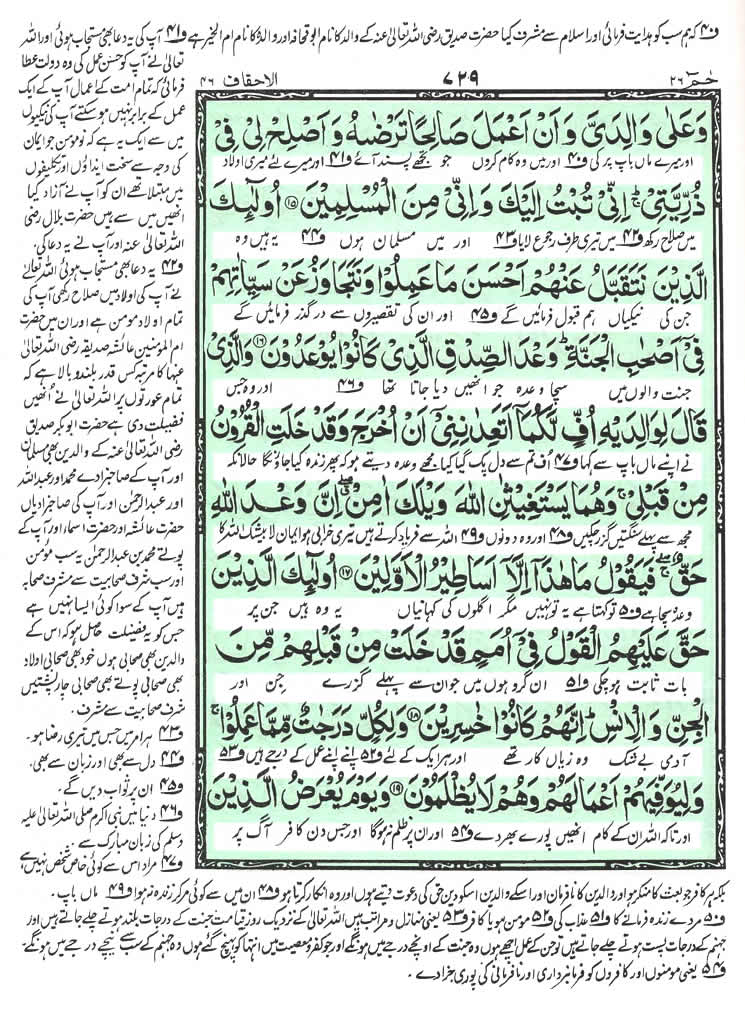 ف۴۰ کہ ہم سب کو ہدایت فرمائی اور اسلام سے مشرف کیا حضرت صدیق رضی اللہ تعالیٰ عنہ کے والد کا نام ابوقحافہ اور والدہ کا نام ام الخیر ہے ف۴۱ آپ کی یہ دعا بھی مستجاب ہوئی اور اللہ
حٰمٓ ۲۶
۷۲۹
الاحقاف ۴۶
وَعَلٰى وَالِدَىَّ وَاَنْ اَعْمَلَ صَالِحًا تَرْضٰىهُ وَاَصْلِحْ لِىْ فِىْ
اور میرے ماں باپ پر کی ف۴۰ اور میں وہ کام کروں جو تجھے پسند آئے ف۴۱ اور میرے لئے میری اولاد
ذُرِّيَّتِىْ ۚ اِنِّىْ تُبْتُ اِلَيْكَ وَاِنِّىْ مِنَ الْمُسْلِمِيْنَ ۝۱۵ اُولٰٓئِكَ
میں صلاح رکھ ف۴۲ میں تیری طرف رجوع لایا ف۴۳ اور میں مسلمان ہوں ف۴۴ یہ ہیں وہ
الَّذِيْنَ نَتَقَبَّلُ عَنْهُمْ اَحْسَنَ مَا عَمِلُوْا وَنَتَجَاوَزُ عَنْ سَيِّاٰتِهِمْ
جن کی نیکیاں ہم قبول فرمائیں گے ف۴۵ اور ان کی تقصیروں سے درگذر فرمائیں گے
فِىْۤ اَصْحٰبِ الْجَنَّةِ ؕ وَعْدَ الصِّدْقِ الَّذِىْ كَانُوْا يُوْعَدُوْنَ ۝۱۶ وَالَّذِىْ
جنت والوں میں سچا وعدہ جو انھیں دیا جاتا تھا ف۴۶ اور وہ جس
قَالَ لِوَالِدَيْهِ اُفٍّ لَّكُمَاۤ اَتَعِدٰنِنِىْۤ اَنْ اُخْرَجَ وَقَدْ خَلَتِ الْقُرُوْنُ
نے اپنے ماں باپ سے کہا ف۴۷ اُف تم سے دل پک گیا کیا مجھے وعدہ دیتے ہو کہ پھر زندہ کیا جاؤنگا حالانکہ
مِنْ قَبْلِىْ ۚ وَهُمَا يَسْتَغِيْثٰنِ اللّٰهَ وَيْلَكَ اٰمِنْ ۖ اِنَّ وَعْدَ اللّٰهِ
مجھ سے پہلے سنگتیں گزر چکیں ف۴۸ اور وہ دونوں ف۴۹ اللہ سے فریاد کرتے ہیں تیری خرابی ہو ایمان لا بیشک اللہ کا
حَقٌّ ۚ فَيَقُوْلُ مَا هٰذَاۤ اِلَّاۤ اَسَاطِيْرُ الْاَوَّلِيْنَ ۝۱۷ اُولٰٓئِكَ الَّذِيْنَ
وعدہ سچا ہے ف۵۰ تو کہتا ہے یہ تو نہیں مگر اگلوں کی کہانیاں یہ وہ ہیں جن پر
حَقَّ عَلَيْهِمُ الْقَوْلُ فِىْۤ اُمَمٍ قَدْ خَلَتْ مِنْ قَبْلِهِمْ مِّنَ
بات ثابت ہوچکی ف۵۱ ان گروہوں میں جو ان سے پہلے گزرے جن اور
الْجِنِّ وَالْاِنْسِ ؕ اِنَّهُمْ كَانُوْا خٰسِرِيْنَ ۝۱۸ وَلِكُلٍّ دَرَجٰتٌ مِّمَّا عَمِلُوْا ۚ
آدمی بے شک وہ زیاں کار تھے اور ہر ایک کے لئے ف۵۲ اپنے اپنے عمل کے درجے ہیں ف۵۳
وَلِيُوَفِّيَهُمْ اَعْمَالَهُمْ وَهُمْ لَا يُظْلَمُوْنَ ۝۱۹ وَيَوْمَ يُعْرَضُ الَّذِيْنَ
اور تاکہ اللہ ان کے کام انھیں پورے بھر دے ف۵۴ اور ان پر ظلم نہ ہوگا اور جس دن کافر آگ پر
تعالیٰ نے آپ کو حسنِ عمل کی وہ دولت عطا
فرمائی کہ تمام امت کے اعمال آپ کے ایک
عمل کے برابر نہیں ہوسکتے آپ کی نیکیوں
میں سے ایک یہ ہے کہ نو مومن جو ایمان
کی وجہ سے سخت ایذاؤں اور تکلیفوں
میں مبتلا تھے ان کو آپ نے آزاد کیا
انھیں میں سے ہیں حضرت بلال رضی
اللہ تعالیٰ عنہ اور آپ نے یہ دعا کی۔
ف۴۲ یہ دعا بھی مستجاب ہوئی اللہ تعالیٰ
نے آپ کی اولاد میں صلاح رکھی آپ کی
تمام اولاد مومن ہے اور ان میں حضرت
ام المومنین عائشہ صدیقہ رضی اللہ تعالیٰ
عنہا کا مرتبہ کس قدر بلند و بالا ہے کہ
تمام عورتوں پر اللہ تعالیٰ نے اُنھیں
فضیلت دی ہے حضرت ابوبکر صدیق
رضی اللہ تعالیٰ عنہ کے والدین بھی مسلمان
اور آپ کے صاحبزادے محمد اور عبداللہ
اور عبدالرحمٰن اور آپ کی صاحبزادیاں
حضرت عائشہ اور حضرت اسماء اور آپ کے
پوتے محمد بن عبدالرحمٰن یہ سب مومن
اور سب شرف صحابیت سے مشرف صحابہ
ہیں آپ کے سوا کوئی ایسا نہیں ہے
جس کو یہ فضیلت حاصل ہو کہ اس کے
والدین بھی صحابی ہوں خود بھی صحابی اولاد
بھی صحابی پوتے بھی صحابی چار پشتیں
شرف صحابیت سے مشرف۔
ف۴۳ ہر امر میں جس میں تیری رضا ہو۔
ف۴۴ دل سے بھی اور زبان سے بھی۔
ف۴۵ ان پر ثواب دیں گے۔
ف۴۶ دنیا میں نبی اکرم صلی اللہ تعالیٰ علیہ
وسلم کی زبان مبارک سے
ف۴۷ مراد اس سے کوئی خاص شخص نہیں ہے
بلکہ ہر کافر جو بعث کا منکر ہو اور والدین کا نافرمان اور اسکے والدین اسکو دین حق کی دعوت دیتے ہوں اور وہ انکار کرتا ہو ف۴۸ ان میں سے کوئی مرکر زندہ نہ ہوا ف۴۹ ماں باپ۔
ف۵۰ مردے زندہ فرمانے کا ف۵۱ عذاب کی ف۵۲ مومن ہو یا کافر ف۵۳ یعنی منازل و مراتب ہیں اللہ تعالیٰ کے نزدیک روز قیامت جنت کے درجات بلند ہوتے چلے جاتے ہیں اور
جہنم کے درجات پست ہوتے چلے جاتے ہیں تو جن کے عمل اچھے ہوں وہ جنت کے اونچے درجے میں ہونگے اور جو کفر و معصیت میں انتہا کو پہنچ گئے ہوں وہ جہنم کے سب سے نیچے درجے میں ہونگے۔
ف۵۴ یعنی مومنوں اور کافروں کو فرمانبرداری اور نافرمانی کی پوری جزا دے۔